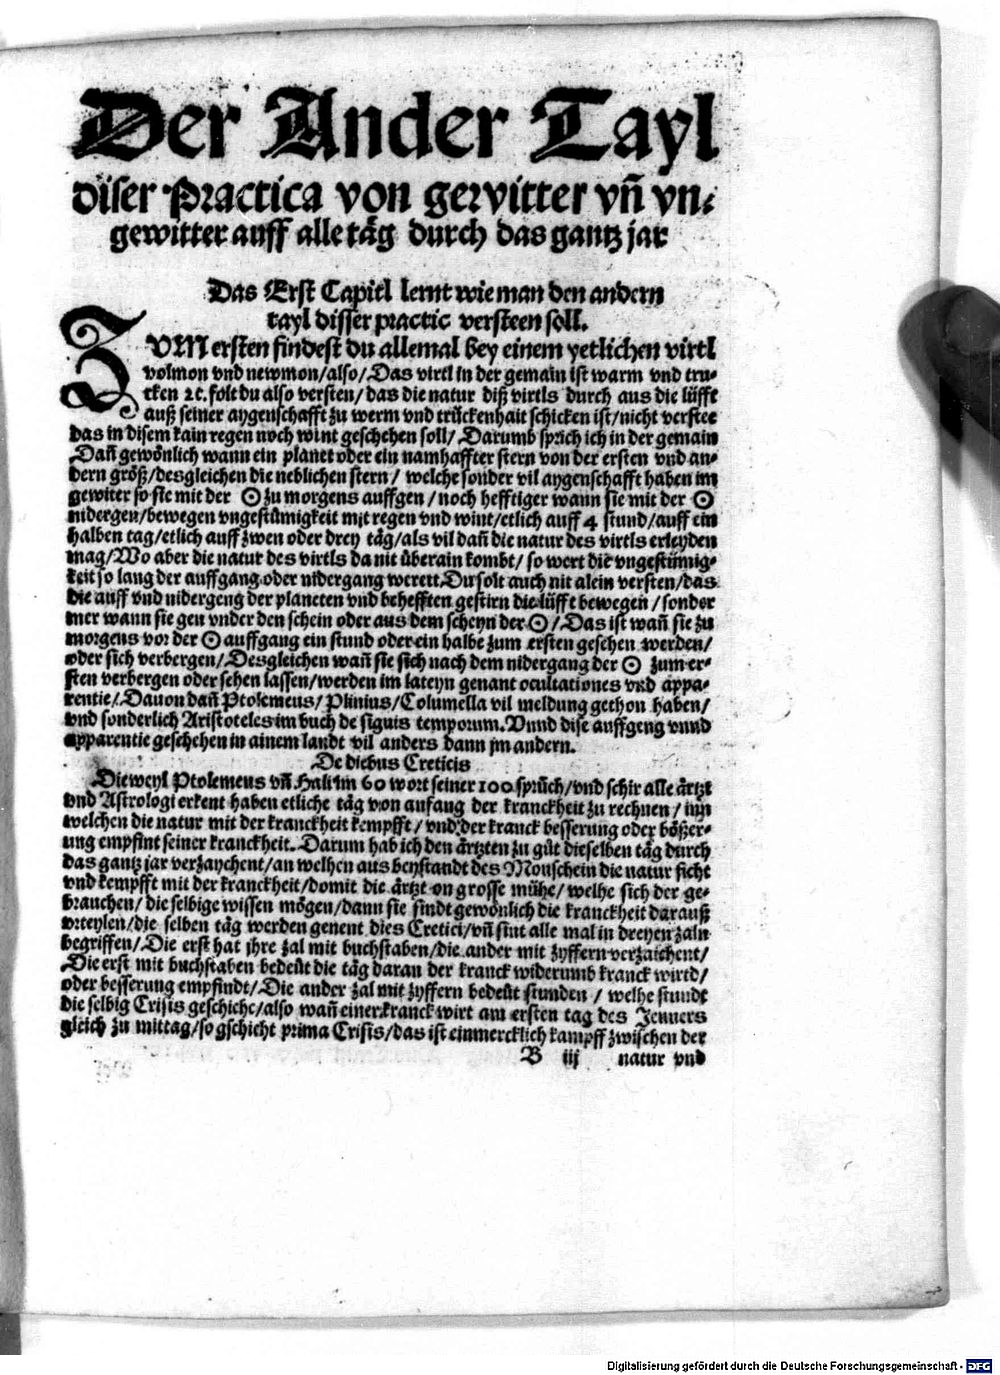 Der Ander Tayl
diser Practica von gewitter vñ vn⸗
gewitter auff alle täg durch das gantz jar
Das Erst Capitl lernt wie man den andern
tayl disser practic versteen soll.
ZVM ersten findest du allemal bey einem yetlichen virtl
volmon vnd newmon/also/Das virtl in der gemain ist warm vnd tru⸗
cken ꝛc. solt du also versten/das die natur diß virtls durch aus die lüfft
auß seiner aygenschafft zu werm vnd trückenhait schicken ist/nicht verstee
das in disem kain regen noch wint geschehen soll/Darumb sprich ich in der gemain
Dañ gewönlich wann ein planet oder ein namhaffter stern von der ersten vnd an⸗
dern größ/desgleichen die neblichen stern/welche sonder vil aygenschafft haben im
gewiter so sie mit der ☉ zu morgens auffgen/noch hefftiger wann sie mit der ☉
nidergen/bewegen vngestümigkeit mit regen vnd wint/etlich auff 4 stund/auff ein
halben tag/etlich auff zwen oder drey täg/als vil dañ die natur des virtls erleyden
mag/Wo aber die natur des virtls da nit überain kombt/so wert die vngestümig⸗
keit so lang der auffgang oder nidergang werett. Du solt auch nit alein versten/das
die auff vnd nidergeng der planeten vnd behefften gestirn die lüfft bewegen/sonder
mer wann sie gen vnder den schein oder aus dem scheyn der ☉/Das ist wañ sie zu
morgens vor der ☉ auffgang ein stund oder ein halbe zum ersten gesehen werden/
oder sich verbergen/Desgleichen wañ sie sich nach dem nidergang der ☉ zum er⸗
sten verbergen oder sehen lassen/werden im lateyn genant ocultationes vnd appa⸗
rentie/Dauon dañ Ptolemeus/Plinius/Columella vil meldung gethon haben/
vnd sonderlich Aristoteles im buch de signis temporum. Vnnd dise auffgeng vnnd
apparentie geschehen in ainem landt vil anders dann jm andern.
De diebus Creticis
Dieweyl Ptolemeus vñ Hali im 60 wort seiner 100 sprüch/vnd schir alle ärtzt
vnd Astrologi erkent haben etliche täg von anfang der kranckheit zu rechnen/inn
welchen die natur mit der kranckheit kempfft/vnd der kranck besserung oder bößer⸗
ung empfint seiner kranckheit. Darum hab ich den ärtzten zu gůt dieselben täg durch
das gantz jar verzaychent/an welhen aus beystandt des Monschein die natur ficht
vnd kempfft mit der kranckheit/domit die ärtzt on grosse mühe/welhe sich der ge⸗
brauchen/die selbige wissen mögen/dann sie sindt gewönlich die kranckheit darauß
vrteylen/die selben täg werden genent dies Cretici/vñ sint alle mal in dreyen zaln
begriffen/Die erst hat jhre zal mit buchstaben/die ander mit zyffern verzaichent/
Die erst mit buchstaben bedeůt die täg daran der kranck widerumb kranck wirtd/
oder besserung empfindt/Die ander zal mit zyffern bedeůt stunden/welhe stundt
die selbig Crisis geschiche/also wañ einer kranck wirt am ersten tag des Jenners
gleich zu mittag/so gschicht prima Crisis/das ist ein mercklich kampff zwischen der
B iij natur vnd
Digitalisierung gefördert durch die Deutsche Forschungsgemeinschaft - DFG